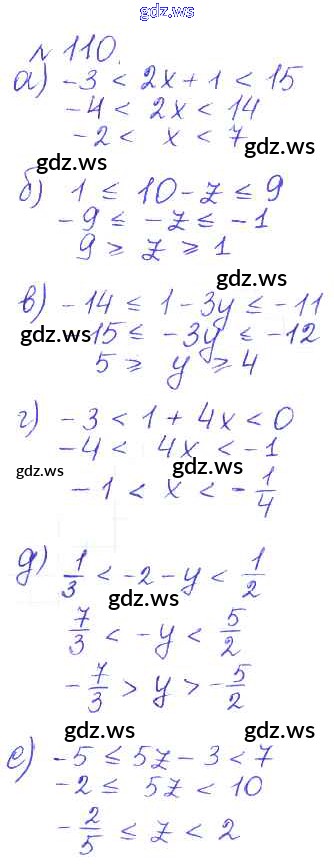 gdz.ws
№ 110.
а) -3 < 2x + 1 < 15
-4 < 2x < 14
-2 < x < 7
gdz.ws
gdz.ws
б) 1 ≤ 10 - z ≤ 9
-9 ≤ -z ≤ -1
9 ≥ z ≥ 1
gdz.ws
gdz.ws
в) -14 ≤ 1 - 3y ≤ -11
gdz.ws 15 ≤ -3y ≤ -12
gdz.ws
5 ≥ y ≥ 4
г) -3 < 1 + 4x < 0
-4 < 4x < -1
gdz.ws gdz.ws
-1 < x < -1/4
gdz.ws
д) 1/3 < -2 - y < 1/2
gdz.ws
7/3 < -y < 5/2
-7/3 > y > -5/2
gdz.ws gdz.ws
е) -5 ≤ 5z - 3 < 7
-2 ≤ 5z < 10
gdz.ws
-2/5 ≤ z < 2
gdz.ws